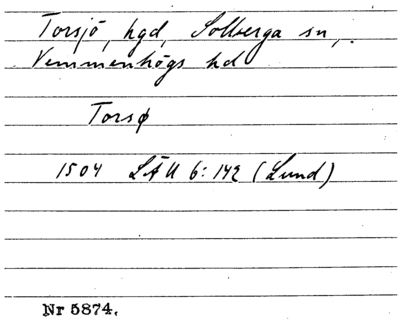 Torsjö, hgd, Solberga sn,
Vemmenhögs hd
Torsø
1504 LÄU 6: 142 (Lund)
Nr 5874.